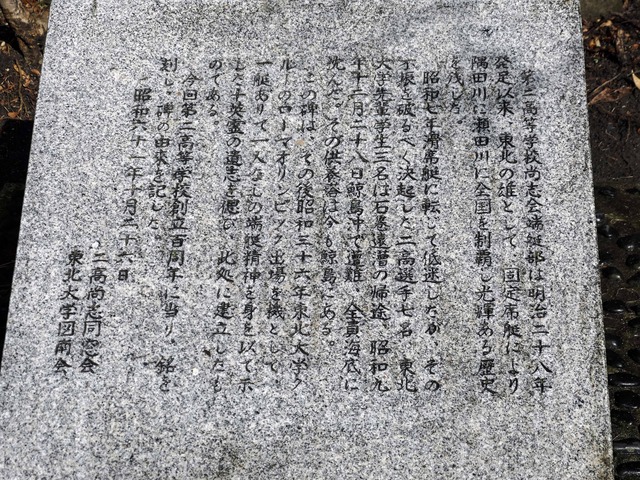 第二高等学校尚志会端艇部は明治二十八年
発足以来、東北の雄として、固定席艇により
隅田川に瀬田川に全国を制覇し光輝ある歴史
を残した。
昭和七年滑席艇に転じて低迷したが、その
不振を破るべく決起した二高選手七名、東北
大学先輩学生三名は石巻遠漕の帰途、昭和九
年十二月二十八日鯨島沖で遭難、全員海底に
沈んだ。その供養塔は今も鯨島にある。
この碑は、その後昭和三十六年東北大学ク
ルーのローマオリンピック出場を機として、
一艇ありて一人なしの端艇精神を身を以て示
した十英霊の遺志を偲び、此処に建立したも
のである。
今回第二高等学校創立百周年に当り、銘を
刻し、碑の由来を記した。
昭和六十一年十月二十六日
二高尚志同窓会
東北大学図南会